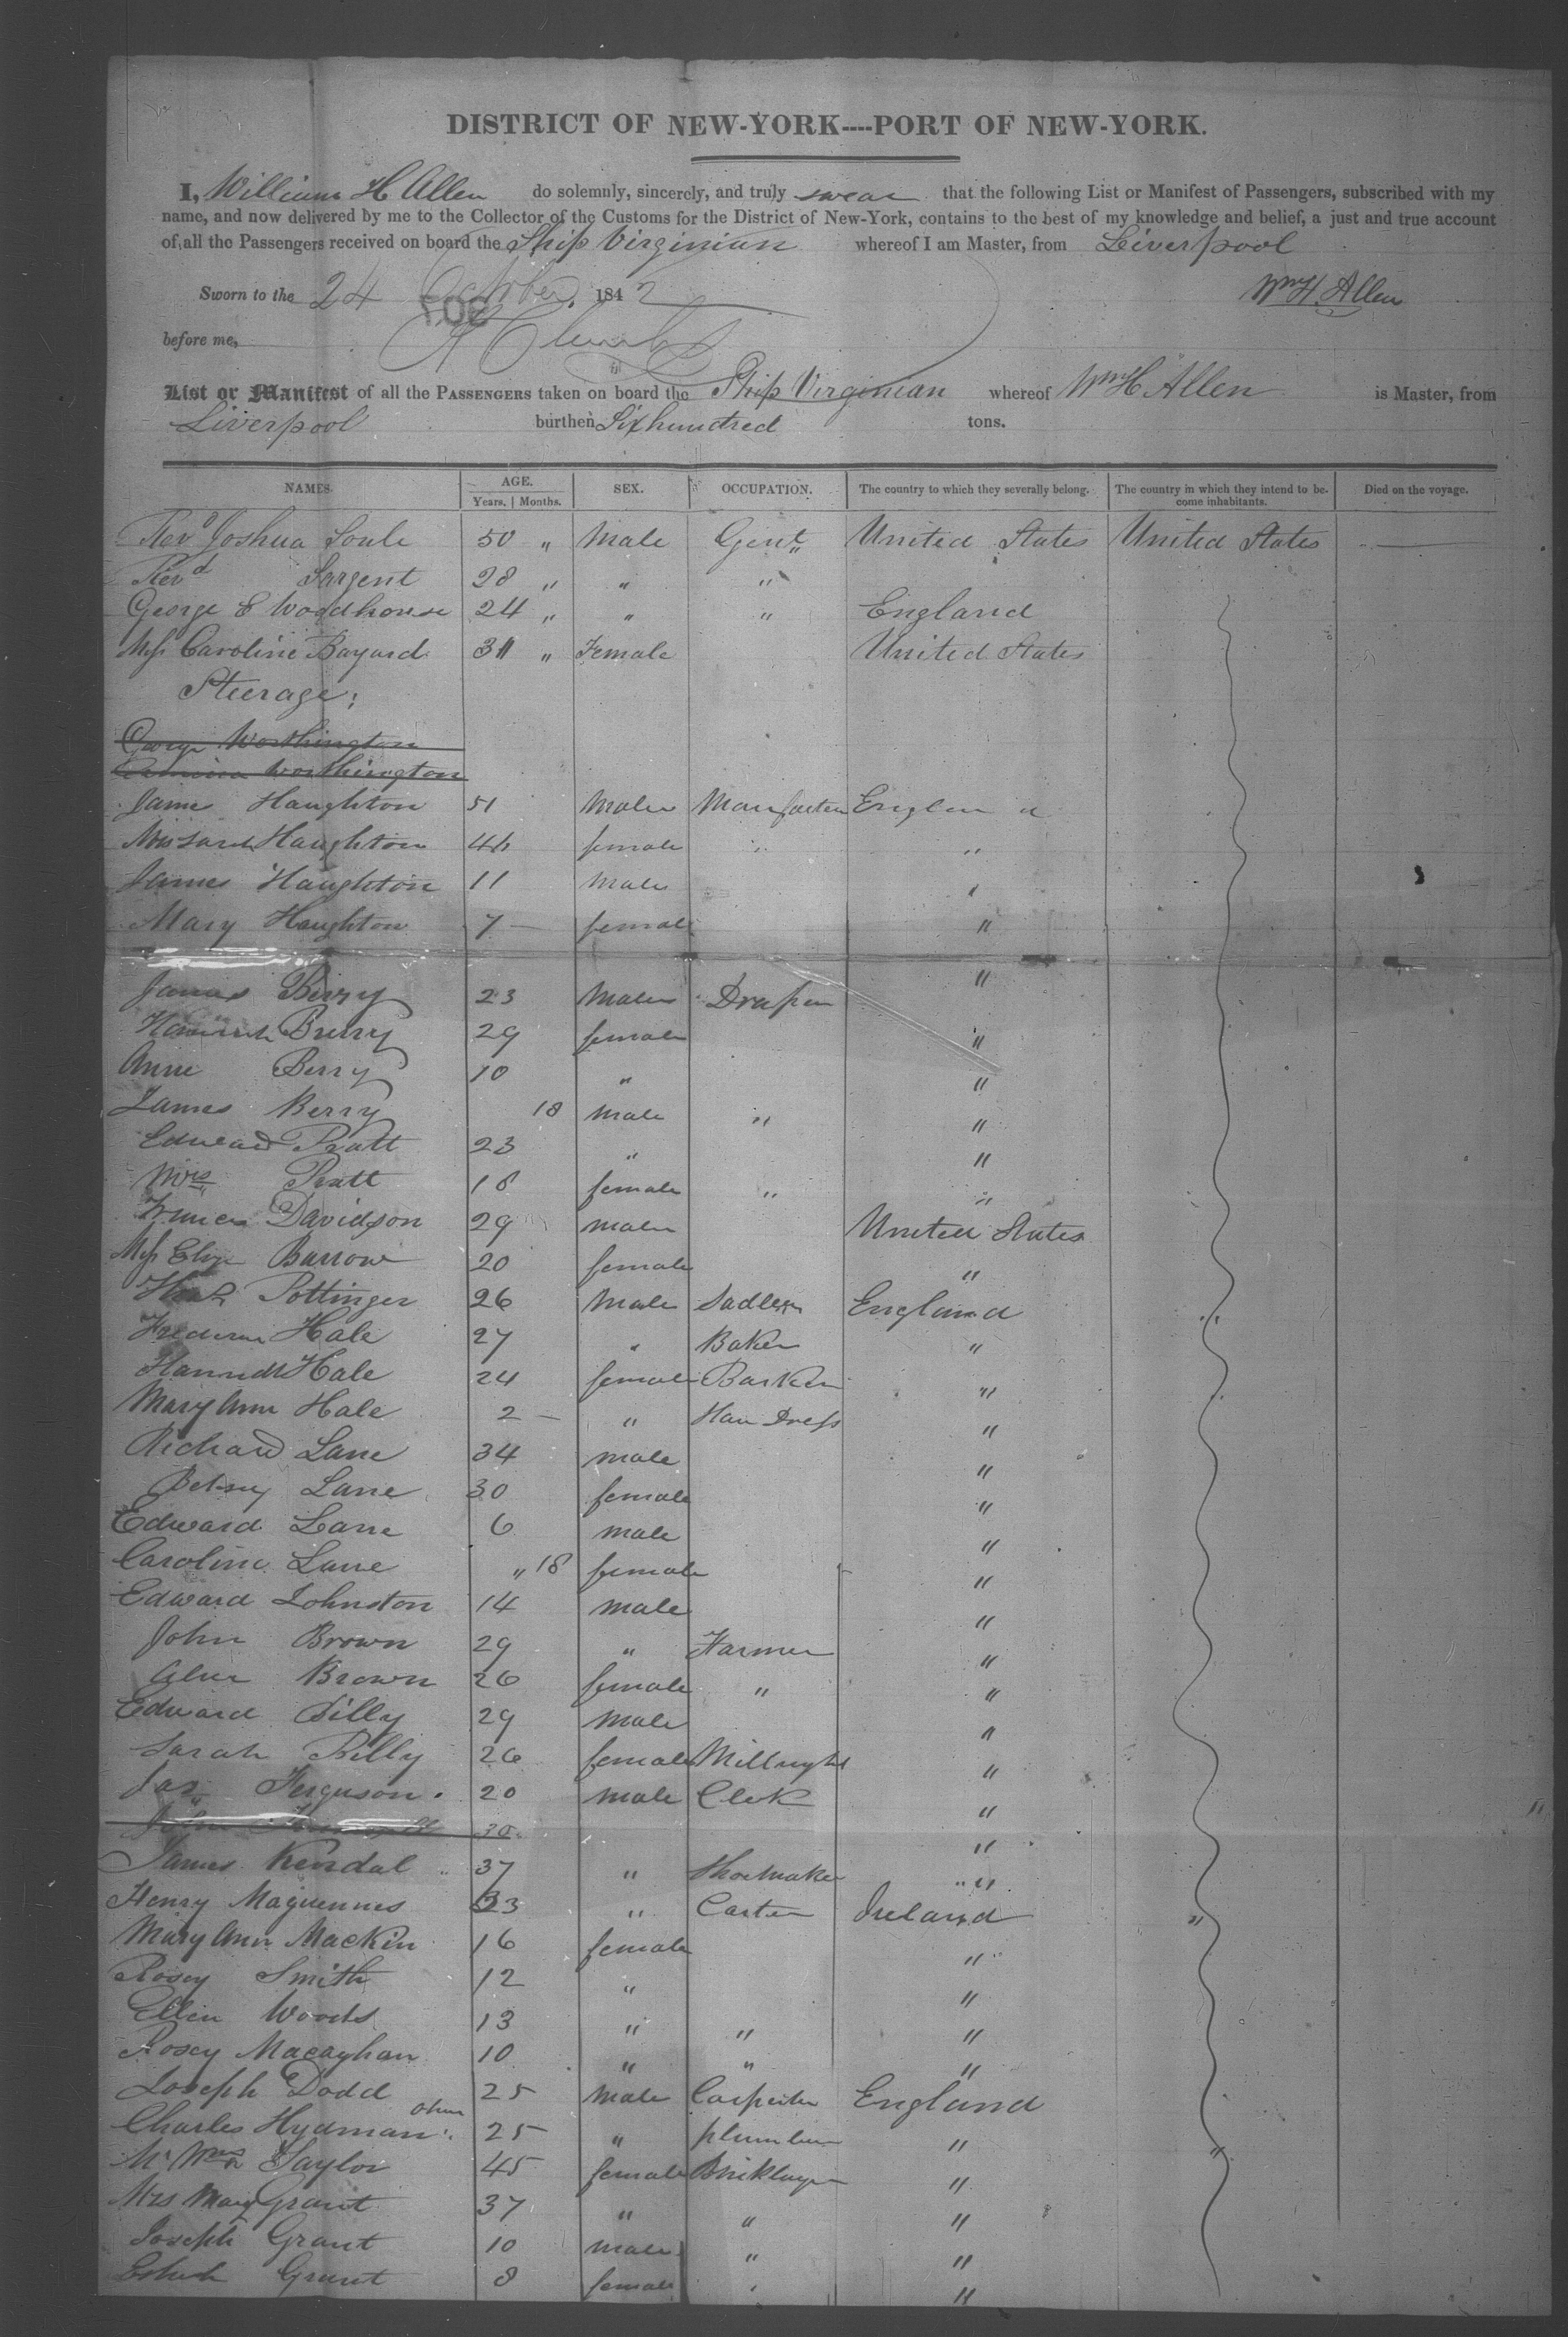 DISTRICT OF NEW-YORK----PORT OF NEW-YORK.
I, William H Allen do solemnly, sincerely, and truly swear that the following List or Manifest of Passengers, subscribed with my
name, and now delivered by me to the Collector of the Customs for the District of New-York, contains to the best of my knowledge and belief, a just and true account
of all the Passengers received on board the Ship Virginian whereof I am Master, from Liverpool
Sworn to the 24 October, 1842 Wm H. Allen
before me,
List or Manifest of all the PASSENGERS taken on board the Ship Virginian whereof Wm H Allen is Master, from
Liverpool burthen Six hundred tons.
NAMES. AGE. Years. | Months. SEX. OCCUPATION. The country to which they severally belong. The country in which they intend to become inhabitants. Died on the voyage.
Revd Joshua Soule 50 " Male Gent United States United States
Revd Sargent 28 " " "
George E Woodhouse 24 " " " England
Miss Caroline Bayard 31 " Female United States
Steerage:
George Worthington
Worthington
James Haughton 51 Male England
Mrs Sarah Haughton 46 female " "
James Haughton 11 Male "
Mary Haughton 7 — female "
James Berry 23 Male Draper "
Hannah Berry 29 female "
Anne Berry 10 " "
James Berry 18 Male " "
Edward Pratt 23 " "
Mrs Pratt 18 female " "
Davidson 29 male United States
Miss Barrow 20 female "
Pottinger 26 Male Sadler England
Hale 27 " Baker "
Hannah Hale 24 female "
Mary Ann Hale 2 — " "
Richard Lane 34 male "
Betsey Lane 30 female "
Edward Lane 6 male "
Caroline Lane " 18 female "
Edward Johnston 14 male "
John Brown 29 " Farmer "
Brown 26 female " "
Edward 29 Male "
Sarah 26 female "
Jas Ferguson 20 male Clerk "
John 30 "
James Kendal 37 " Shoemaker "
Henry Maguennes 33 " Carter Ireland "
Mary Ann Mackin 16 female "
Rosey Smith 12 " "
Ellen Woods 13 " " "
Rosey Macaghan 10 " " "
Joseph Dodd 25 Male Carpenter England
Charles Hydman 25 " plumber "
Taylor 45 female Bricklayer " "
Mrs Mary Grant 37 " " "
Joseph Grant 10 male " "
Grant 8 female " "